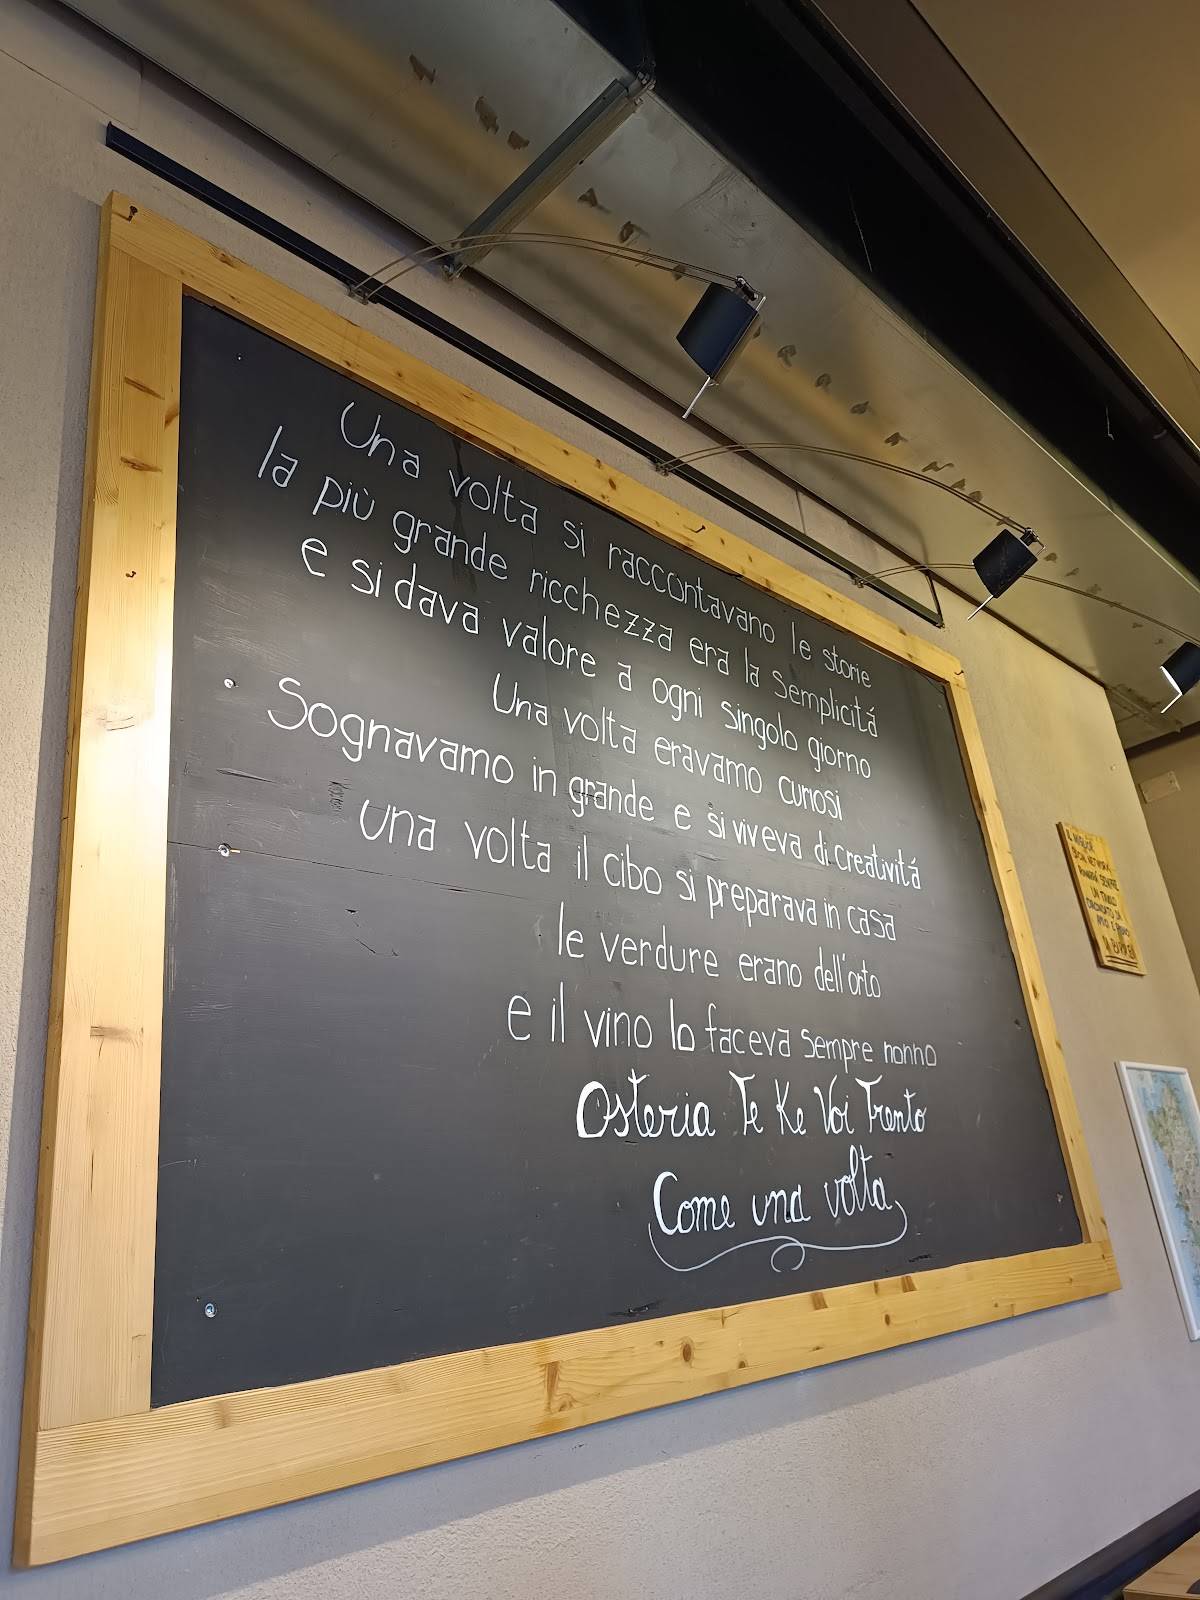 Una volta si raccontavano le storie
la più grande ricchezza era la semplicitá
e si dava valore a ogni singolo giorno
Una volta eravamo curiosi
Sognavamo in grande e si viveva di creativitá
una volta il cibo si preparava in casa
le verdure erano dell'orto
e il vino lo faceva sempre nonno
Osteria Te Ke Voi Trento
Come una volta
IL MIGLIOR
SOCIAL NETWORK
RIMARRÁ SEMPRE
UN TAVOLO
CIRCONDATO DA